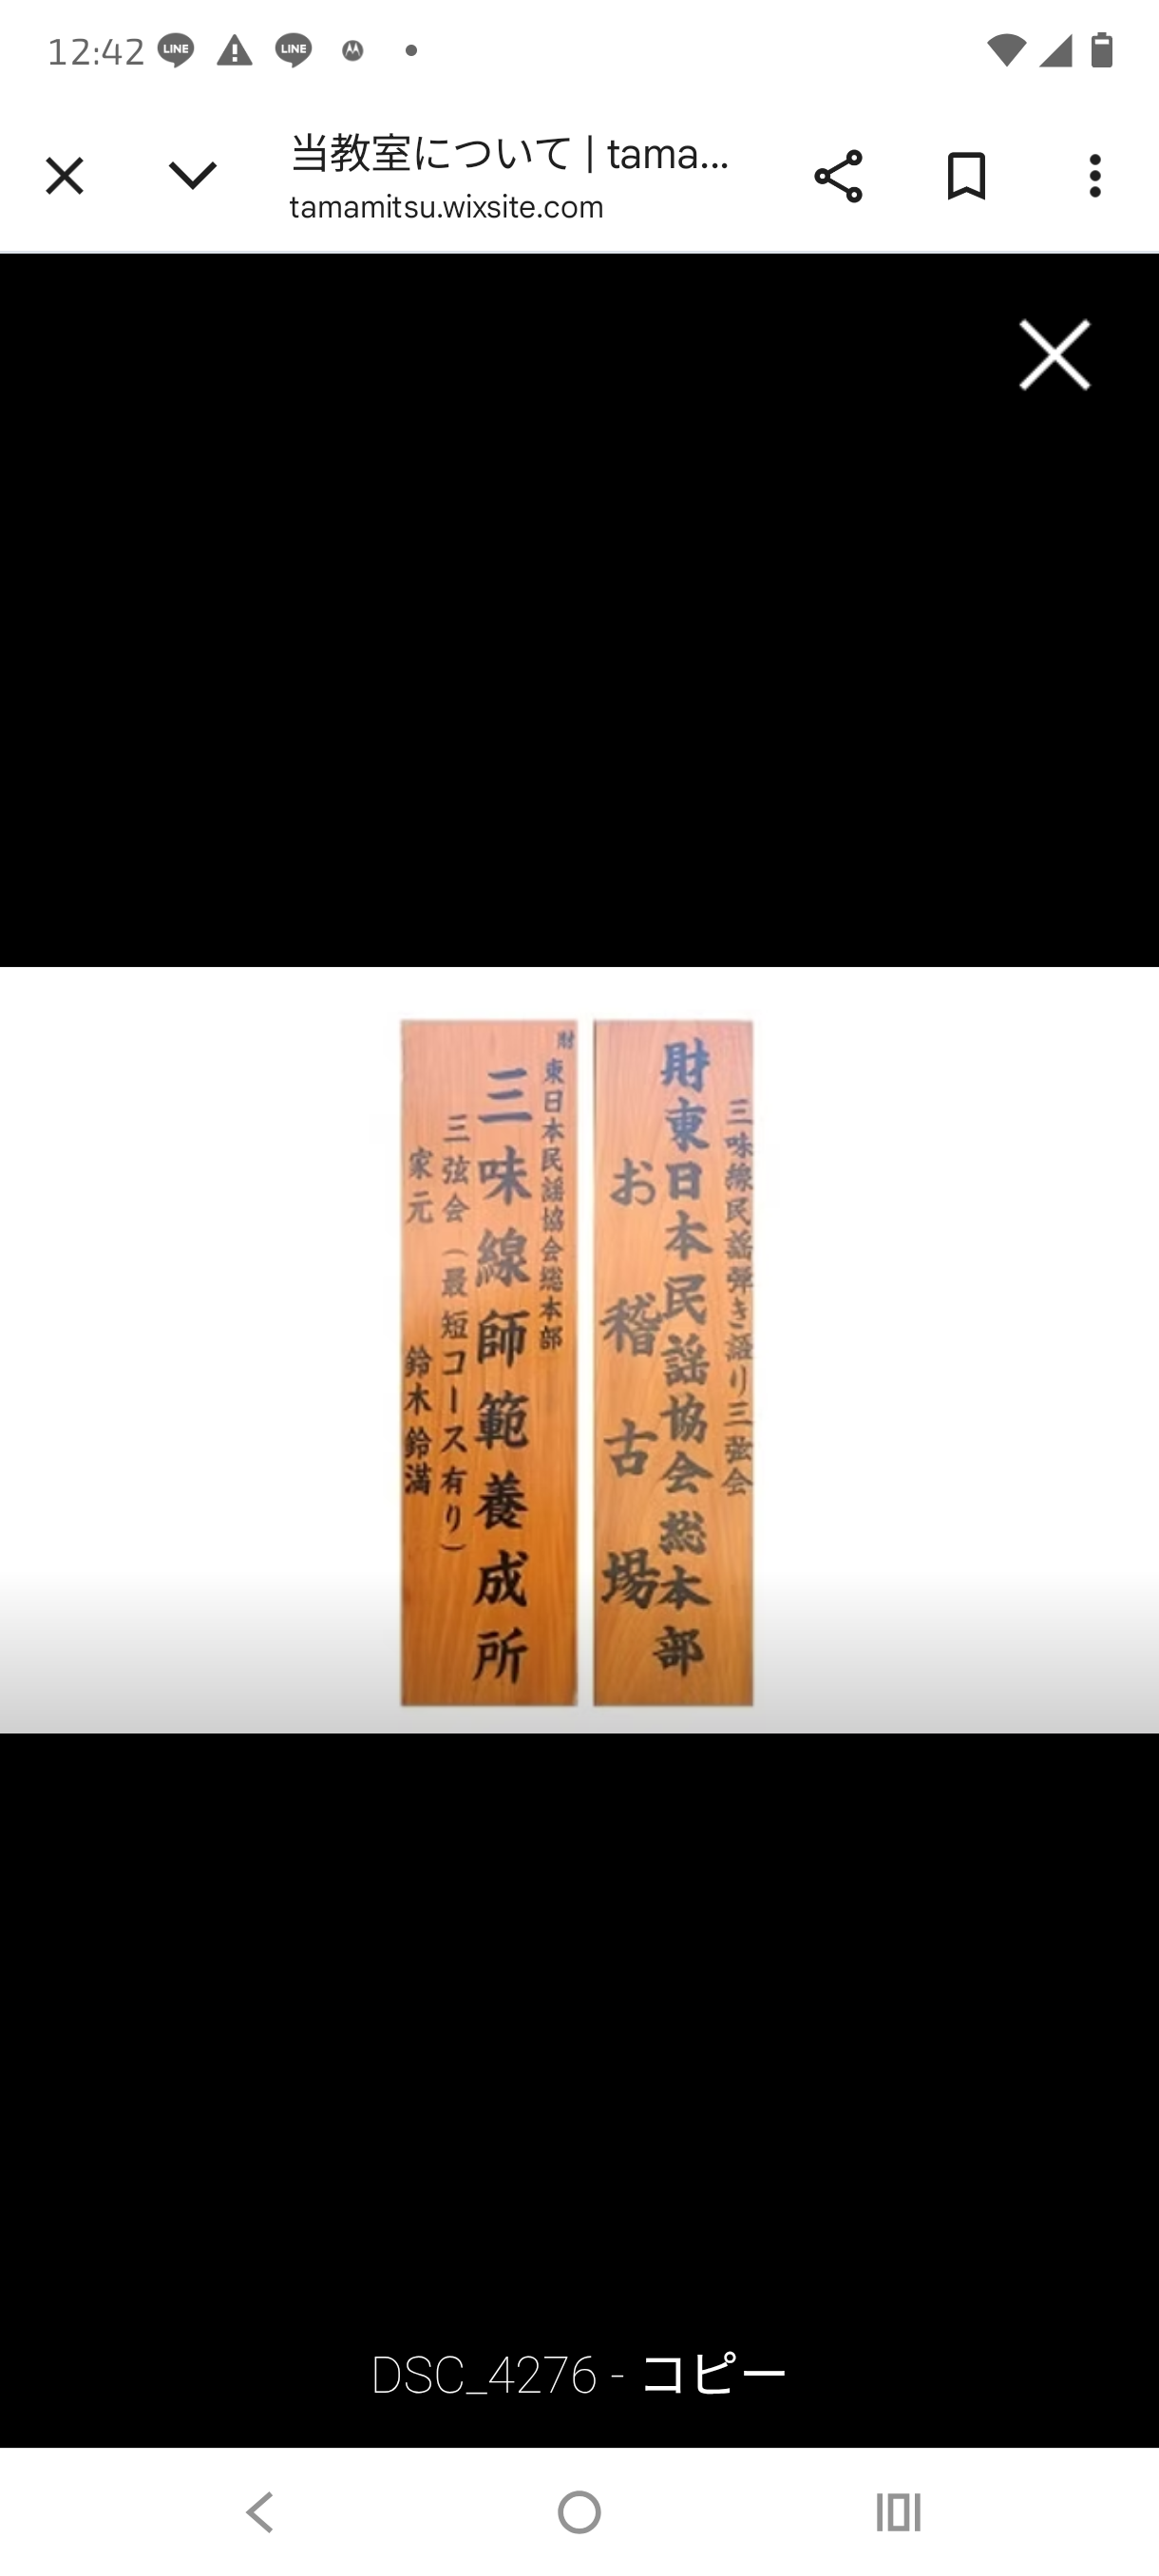 12:42
LINE
LINE
当教室について | tama...
tamamitsu.wixsite.com
三味線民謡弾き語り三弦会
財東日本民謡協会総本部
お稽古場
財
東日本民謡協会総本部
三味線師範養成所
三弦会（最短コース有り）
家元 鈴木鈴満
DSC_4276 - コピー